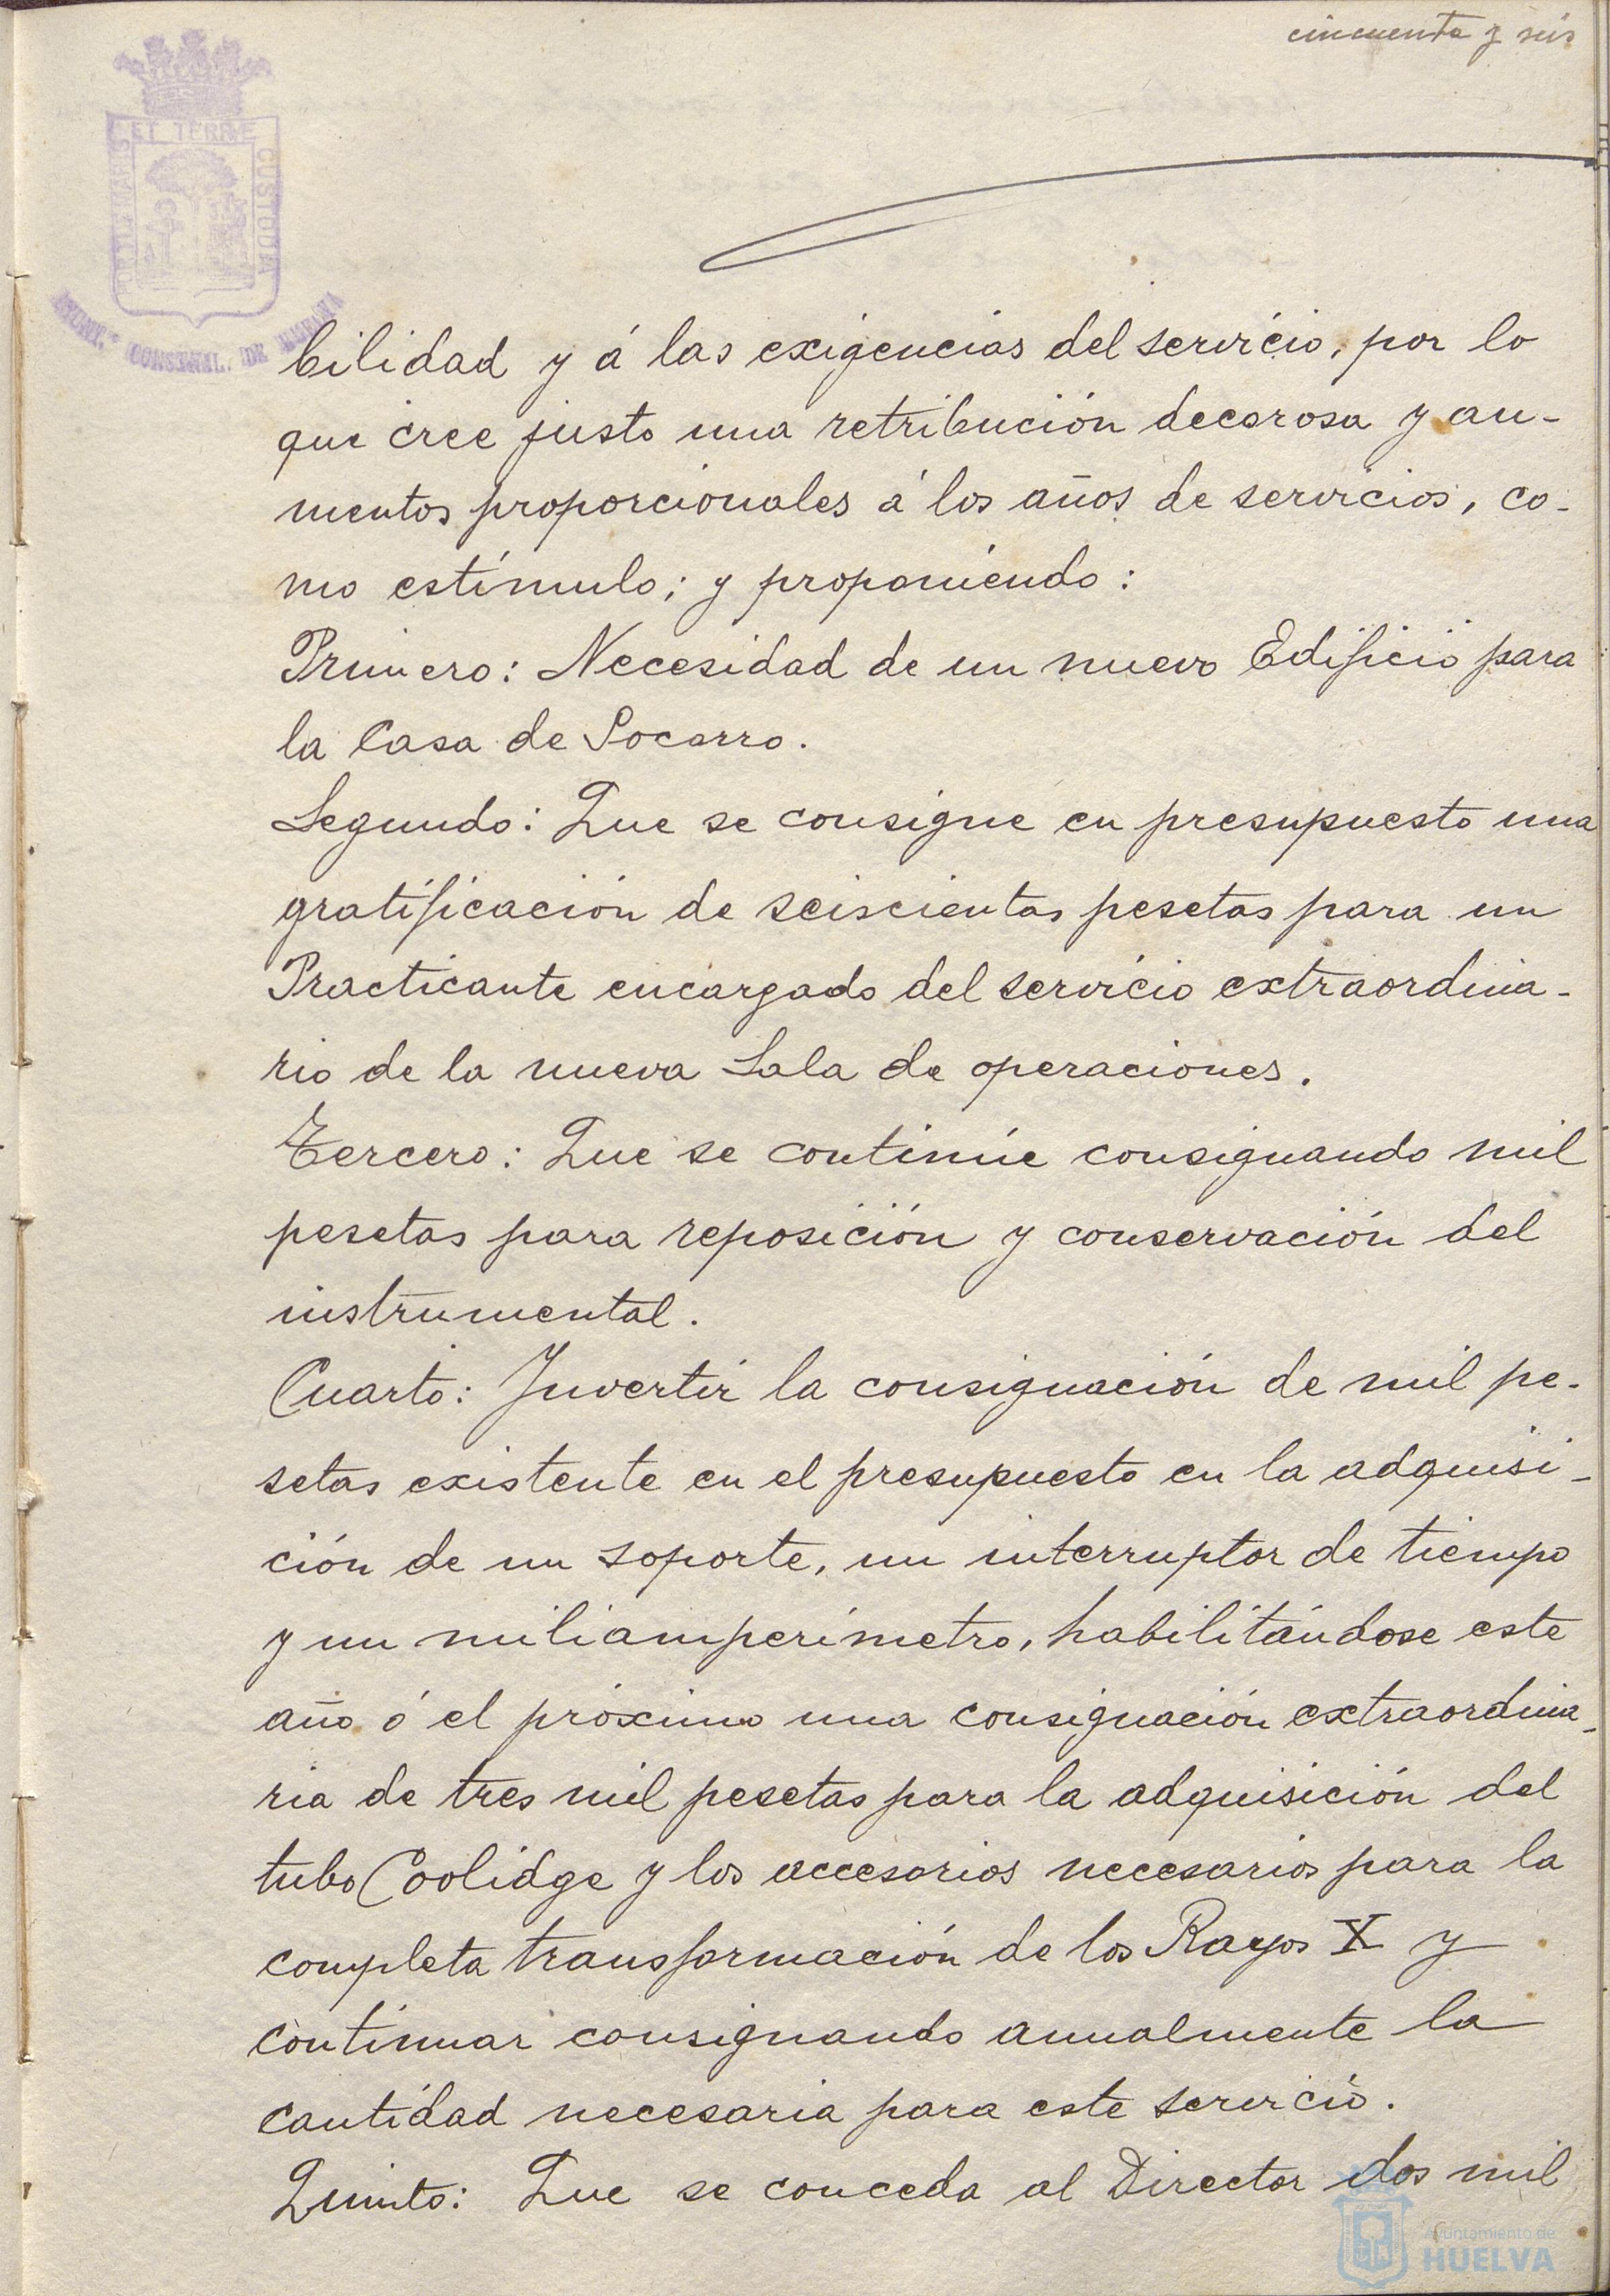 cincuenta y seis
ET TERRÆ
CUSTODIA
bilidad y á las exigencias del servicio, por lo
que cree justo una retribución decorosa y au-
mentos proporcionales á los años de servicios, co-
mo estímulo; y proponiendo:
Primero: Necesidad de un nuevo Edificio para
la Casa de Socorro.
Segundo: Que se consigne en presupuesto una
gratificación de seiscientas pesetas para un
Practicante encargado del servicio extraordina-
rio de la nueva Sala de operaciones.
Tercero: Que se continúe consignando mil
pesetas para reposición y conservación del
instrumental.
Cuarto: Invertir la consignación de mil pe-
setas existente en el presupuesto en la adquisi-
ción de un soporte, un interruptor de tiempo
y un miliamperímetro, habilitándose este
año ó el próximo una consignación extraordina-
ria de tres mil pesetas para la adquisición del
tubo Coolidge y los accesorios necesarios para la
completa transformación de los Rayos X y
continuar consignando anualmente la
cantidad necesaria para este servicio.
Quinto: Que se conceda al Director dos mil
Ayuntamiento de
HUELVA